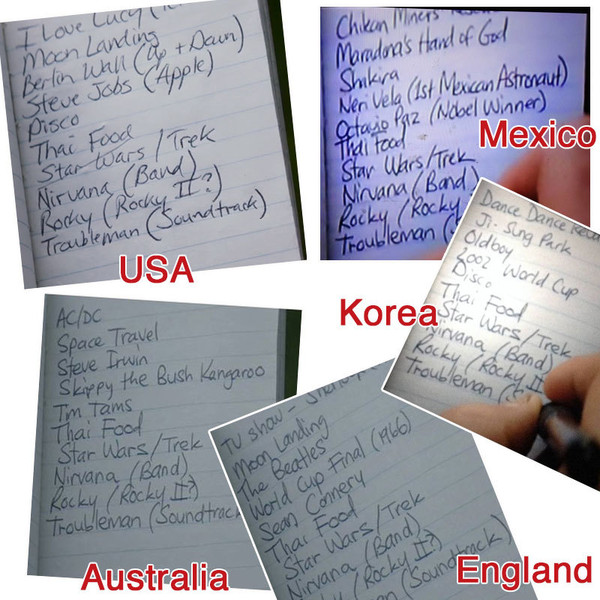 I Love Lucy
Moon Landing
Berlin Wall (Up + Down)
Steve Jobs (Apple)
Disco
Thai Food
Star Wars / Trek
Nirvana (Band)
Rocky (Rocky II?)
Troubleman (Soundtrack)
USA
Chikan Miners
Maradona's Hand of God
Shakira
Neri Vela (1st Mexican Astronaut)
Octavio Paz (Nobel Winner)
Thai Food
Star Wars/Trek
Nirvana (Band)
Rocky (Rocky
Troubleman (
Mexico
Dance Dance
Ji-Sung Park
Oldboy
2002 World Cup
Disco
Thai Food
Star Wars / Trek
Nirvana (Band)
Rocky (Rocky II
Troubleman (S
Korea
AC/DC
Space Travel
Steve Irwin
Skippy the Bush Kangaroo
Tim Tams
Thai Food
Star Wars / Trek
Nirvana (Band)
Rocky (Rocky II?)
Troubleman (Soundtrack
Australia
TV show -
Moon Landing
The Beatles
World Cup Final (1966)
Sean Connery
Thai Food
Star Wars/Trek
Nirvana (Band)
(Rocky II?)
(Soundtrack)
England